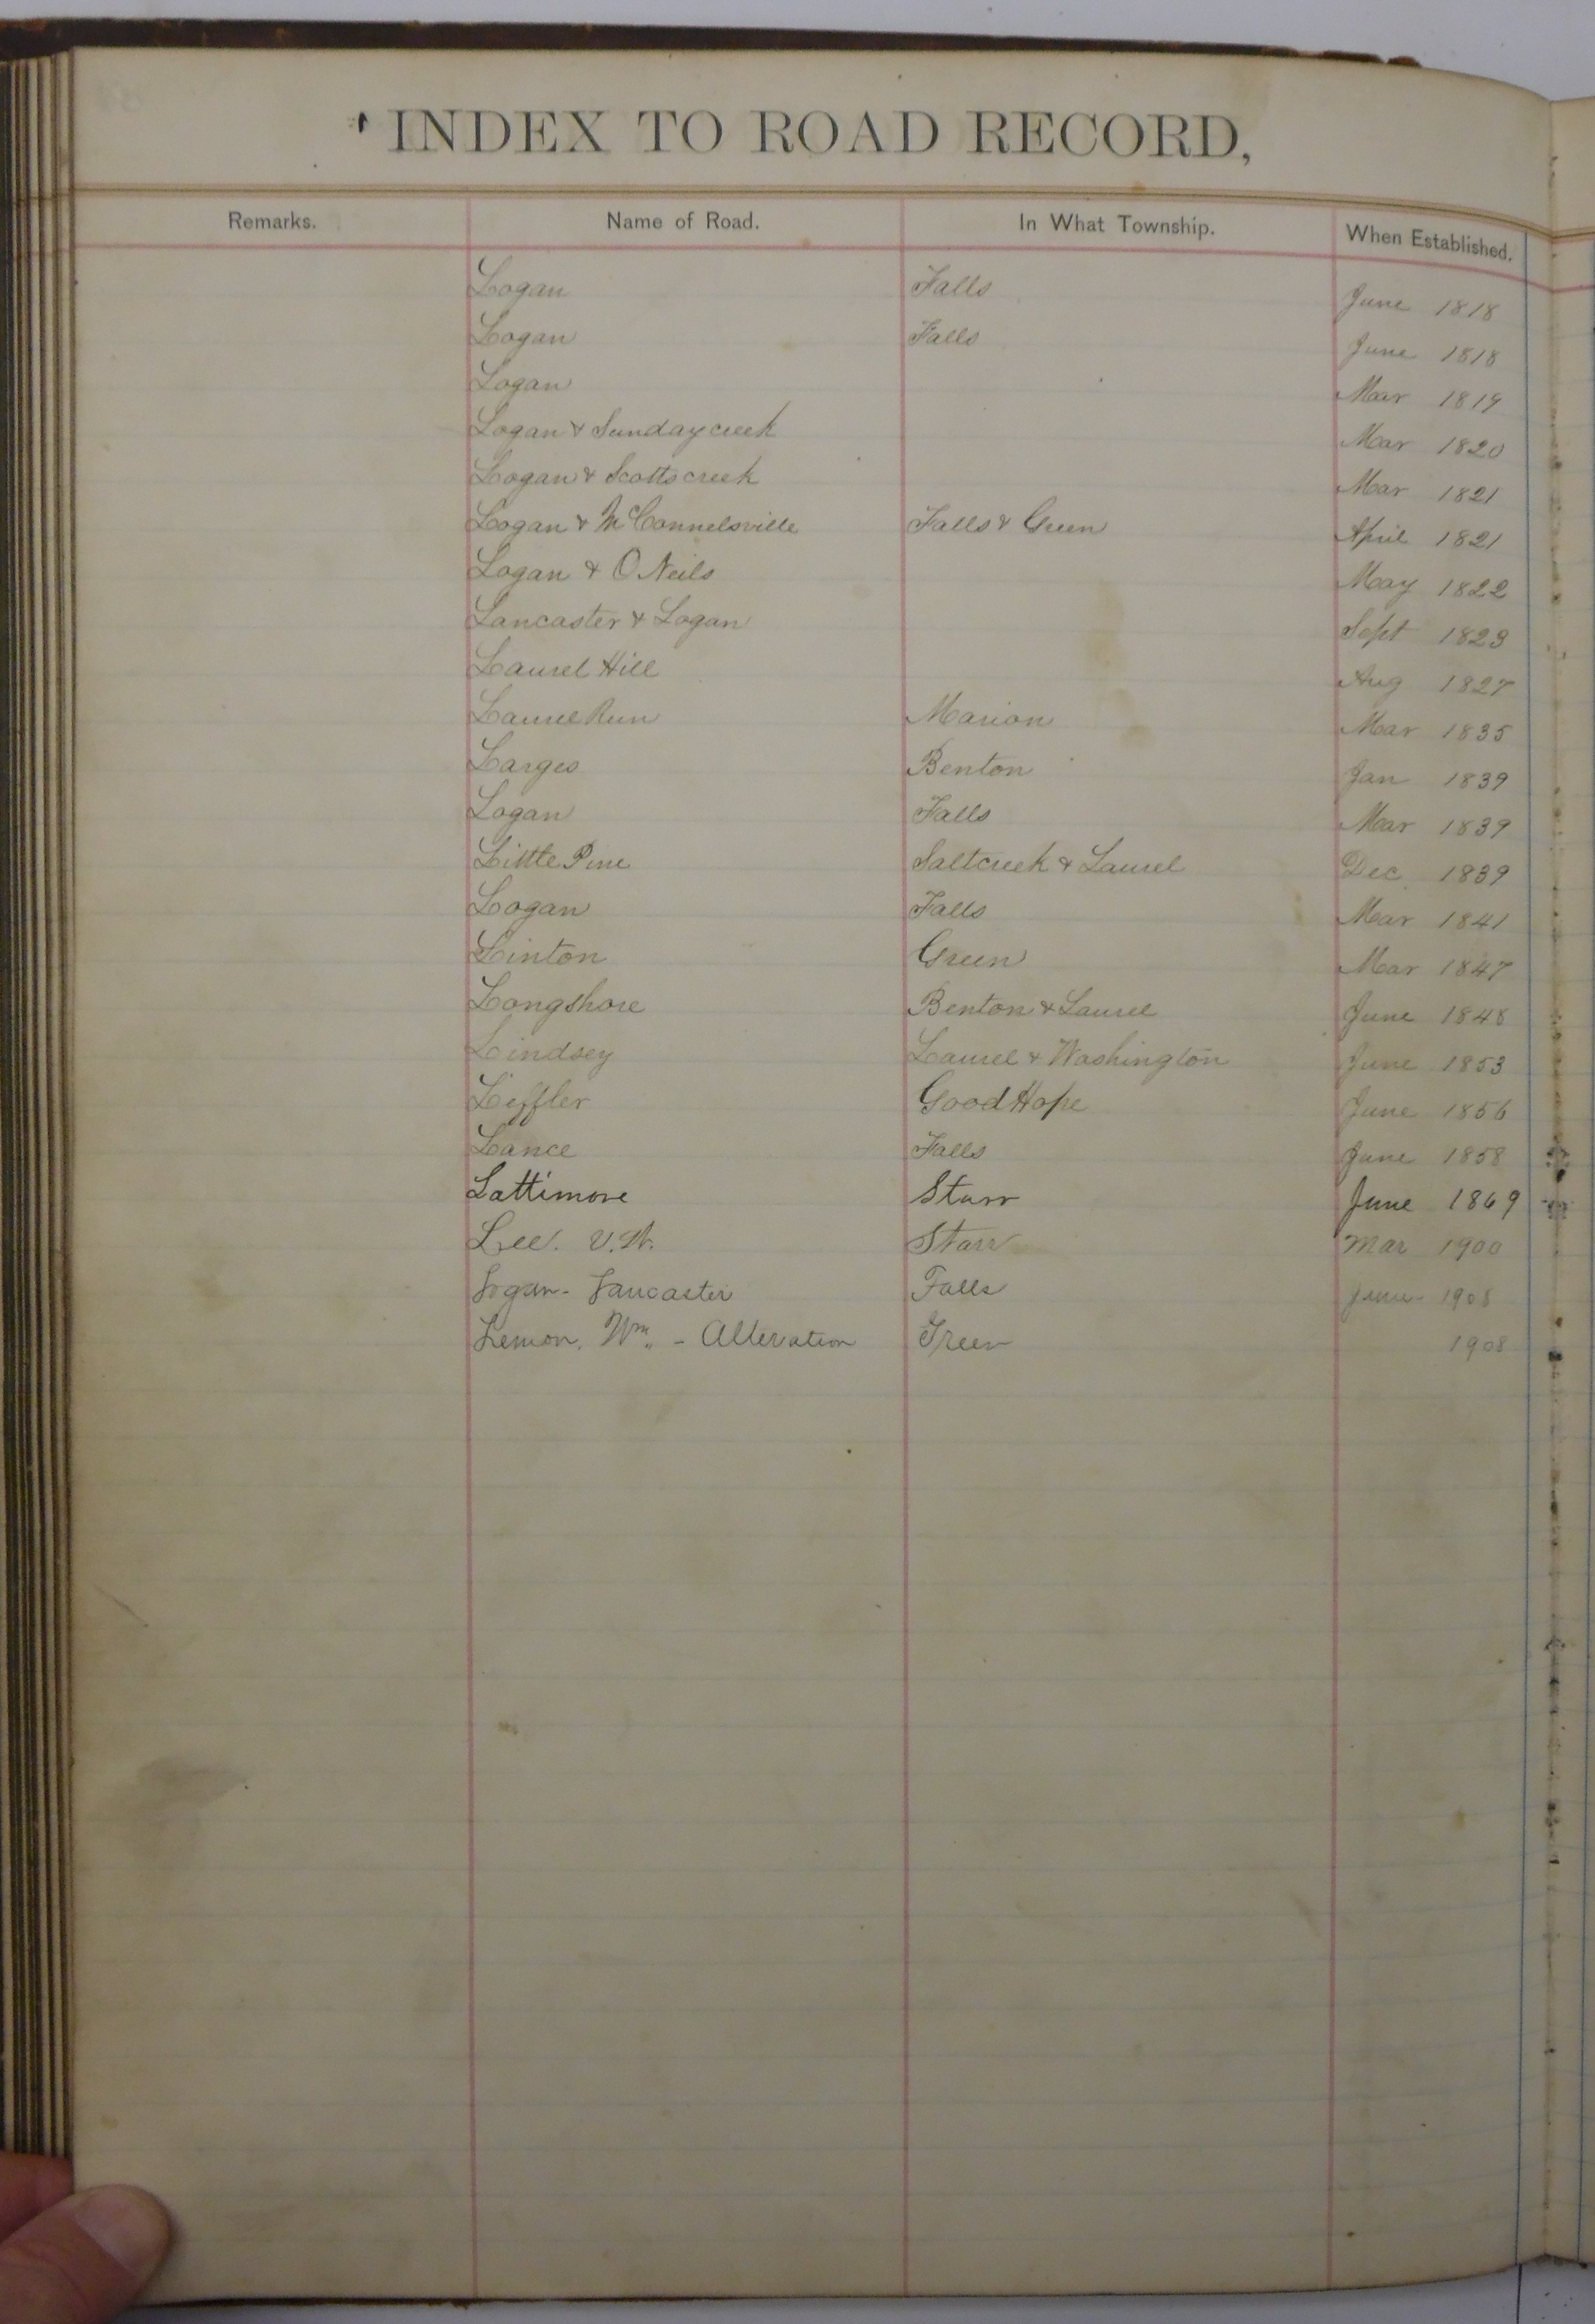 INDEX TO ROAD RECORD,
Remarks. Name of Road. In What Township. When Established.
Logan Falls June 1818
Logan Falls June 1818
Logan Mar 1819
Logan & Sunday creek Mar 1820
Logan & Scotts creek Mar 1821
Logan & McConnelsville Falls & Green April 1821
Logan & O Neils May 1822
Lancaster & Logan Sept 1823
Laurel Hill Aug 1827
Laurel Run Marion Mar 1835
Larges Benton Jan 1839
Logan Falls Mar 1839
Little Pine Saltcreek & Laurel Dec 1839
Logan Falls Mar 1841
Linton Green Mar 1847
Longshore Benton & Laurel June 1848
Lindsey Laurel & Washington June 1853
Leffler Good Hope June 1856
Lance Falls June 1858
Lattimore Starr June 1869
Lee. V.W. Starr Mar 1900
Logan - Lancaster Falls June - 1908
Lemon, Wm. - Alteration Green 1908